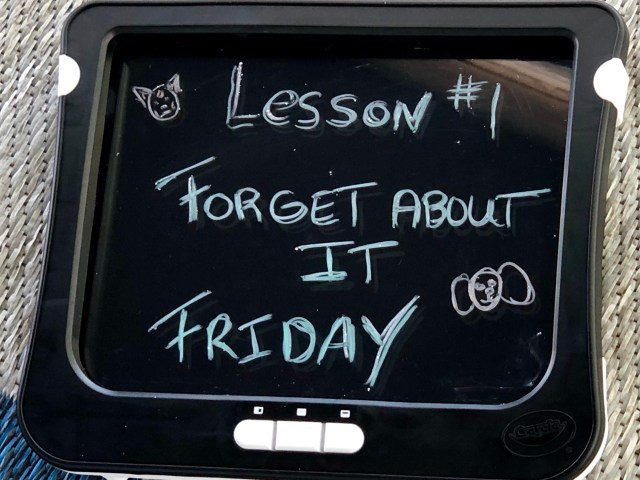 LESSON #1
FORGET ABOUT
IT
FRIDAY
Crayola